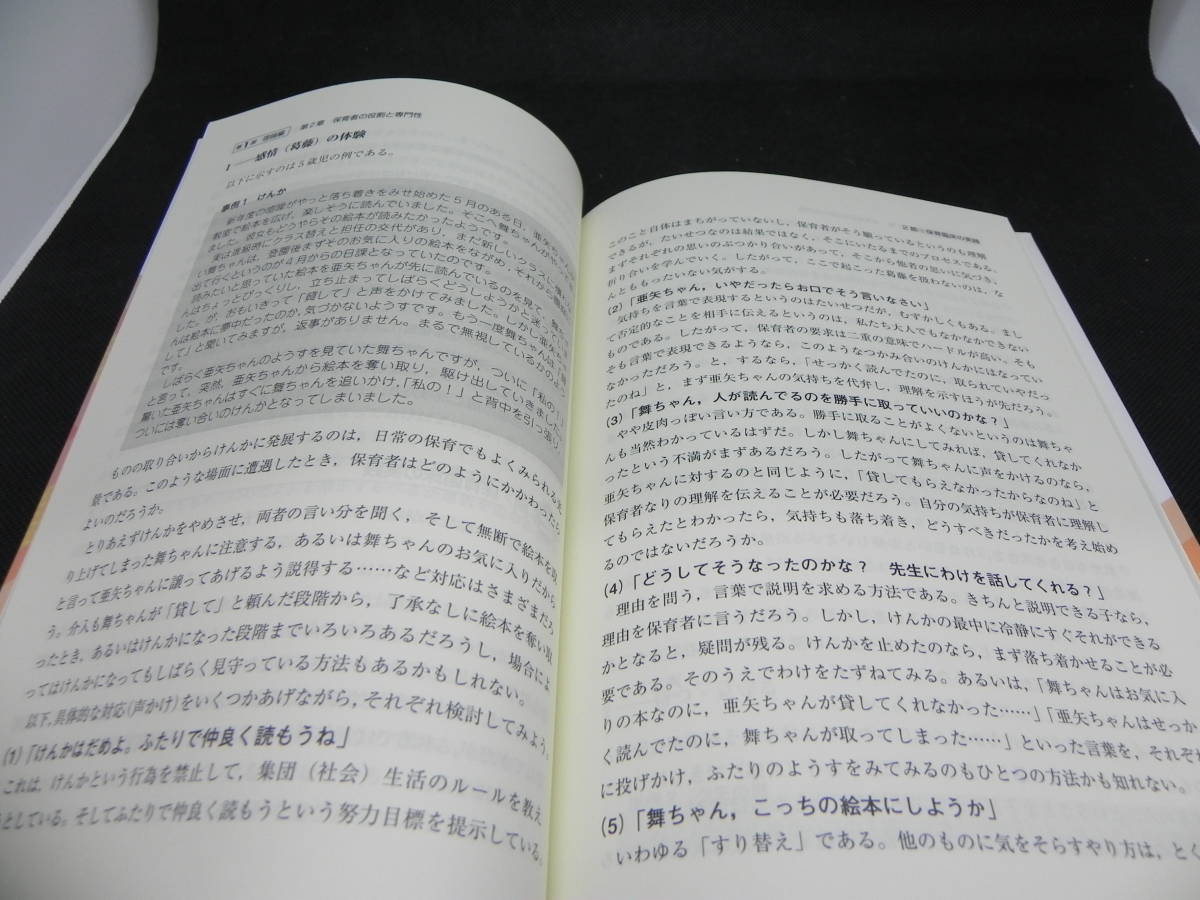 第1部 基礎編 第2章 保育者の役割と専門性
1――感情（葛藤）の体験
以下に示すのは5歳児の例である。
事例1 けんか
新年度の喧騒がやっと落ち着きをみせ始めた5月のある日、亜矢
教室で絵本を広げ，楽しそうに読んでいました。そこへ舞ちゃんが
ました。彼女もどうやらその絵本が読みたかったようです。
実は進級時にクラス替えと担任の交代があり，まだ新しいクラスに
い舞ちゃんは，登園後まずそのお気に入りの絵本をながめ，それから
出て行くというのが4月からの日課となっていたのです。
読みたいと思っていた絵本を亜矢ちゃんが先に読んでいるのを見て，舞
んはちょっとびっくりし，立ち止まってしばらくどうしようかと迷って
したが，おもいきって「貸して」と声をかけてみました。しかし亜矢
んは絵本に夢中だったのか，気づかないようすです。もう一度舞ちゃんは「貸
して」と聞いてみますが，返事がありません。まるで無視しているかのよう
しばらく亜矢ちゃんのようすを見ていた舞ちゃんですが，ついに「私の！」
と言って，突然，亜矢ちゃんから絵本を奪い取り，駆け出していきました。
驚いた亜矢ちゃんはすぐに舞ちゃんを追いかけ，「私の！」と背中を引っ張り，
ついには奪い合いのけんかとなってしまいました。
ものの取り合いからけんかに発展するのは，日常の保育でもよくみられる光
景である。このような場面に遭遇したとき，保育者はどのようにかかわったら
よいのだろうか。
とりあえずけんかをやめさせ，両者の言い分を聞く，そして無断で絵本を取
り上げてしまった舞ちゃんに注意する，あるいは舞ちゃんのお気に入りだから
と言って亜矢ちゃんに譲ってあげるよう説得する……など対応はさまざまだろ
う。介入も舞ちゃんが「貸して」と頼んだ段階から，了承なしに絵本を奪い取
ったとき，あるいはけんかになった段階までいろいろあるだろうし，場合によ
ってはけんかになってもしばらく見守っている方法もあるかもしれない。
以下，具体的な対応（声かけ）をいくつかあげながら，それぞれ検討してみよう。
(1)「けんかはだめよ。ふたりで仲良く読もうね」
これは，けんかという行為を禁止して，集団（社会）生活のルールを教え
うとしている。そしてふたりで仲良く読もうという努力目標を提示している。
2節●保育臨床の実践
このこと自体はまちがっていないし，保育者がそう願っているというのも理解
できるが，たいせつなのは結果ではなく，そこにいたるまでのプロセスである。
まずそれぞれの思いのぶつかり合いがあって，そこから他者の思いに気づき，
折り合いを学んでいく。したがって，ここで起こった葛藤を扱わないのは，な
んともったいない気がする。
(2)「亜矢ちゃん，いやだったらお口でそう言いなさい」
気持ちを言葉で表現するというのはたいせつだが，むずかしくもある。まし
て否定的なことを相手に伝えるというのは，私たち大人でもなかなかできない
ものである。したがって，保育者の要求は二重の意味でハードルが高い。そも
そも言葉で表現できるようなら，このようなつかみ合いのけんかにはなってい
なかっただろう。と，するなら，「せっかく読んでたのに，取られていやだっ
たのね」と，まず亜矢ちゃんの気持ちを代弁し，理解を示すほうが先だろう。
(3)「舞ちゃん，人が読んでるのを勝手に取っていいのかな？」
やや皮肉っぽい言い方である。勝手に取ることがよくないというのは舞ちゃ
んも当然わかっているはずだ。しかし舞ちゃんにしてみれば，貸してくれなか
ったという不満がまずあるだろう。したがって舞ちゃんに声をかけるのなら，
亜矢ちゃんに対するのと同じように，「貸してもらえなかったからなのね」と
保育者なりの理解を伝えることが必要だろう。自分の気持ちが保育者に理解し
てもらえたとわかったら，気持ちも落ち着き，どうすべきだったかを考え始め
るのではないだろうか。
(4)「どうしてそうなったのかな？ 先生にわけを話してくれる？」
理由を問う，言葉で説明を求める方法である。きちんと説明できる子なら，
理由を保育者に言うだろう。しかし，けんかの最中に冷静にすぐそれができる
かとなると，疑問が残る。けんかを止めたのなら，まず落ち着かせることが必
要である。そのうえでわけをたずねてみる。あるいは，「舞ちゃんはお気に入
りの本なのに，亜矢ちゃんが貸してくれなかった……」「亜矢ちゃんはせっか
く読んでたのに，舞ちゃんが取ってしまった……」といった言葉を，それぞれ
に投げかけ，ふたりのようすをみてみるのもひとつの方法かも知れない。
(5)「舞ちゃん，こっちの絵本にしようか」
いわゆる「すり替え」である。他のものに気をそらすやり方は，とく